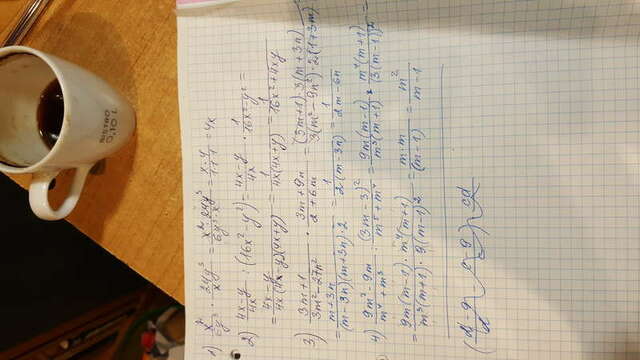 BISTRO
0,10 L
1) x²/6y³ · 24y³/x = x² · 24y³/6y³ · x = x · 4/1·1·1 = 4x
2) 4x-y/4x : (16x² - y²) = 4x-y/4x · 1/16x²-y² =
= 4x-y/4x(4x-y)(4x+y) = 1/4x(4x+y) = 1/16x²+4xy
3) 3m+1/3m²-27n² · 3m+9n/2+6m = (3m+1)·3(m+3n)/3(m²-9n²)·2(1+3m)
= m+3n/(m-3n)(m+3n)·2 = 1/2(m-3n) = 1/2m-6n
4) 9m²-9m/m⁴+m³ : (3m-3)²/m⁵+m⁴ = 9m(m-1)/m³(m+1) · m⁴(m+1)/(3(m-1))² =
= 9m(m-1)·m⁴(m+1)/m³(m+1)·9(m-1)² = m·m/(m-1) = m²/m-1